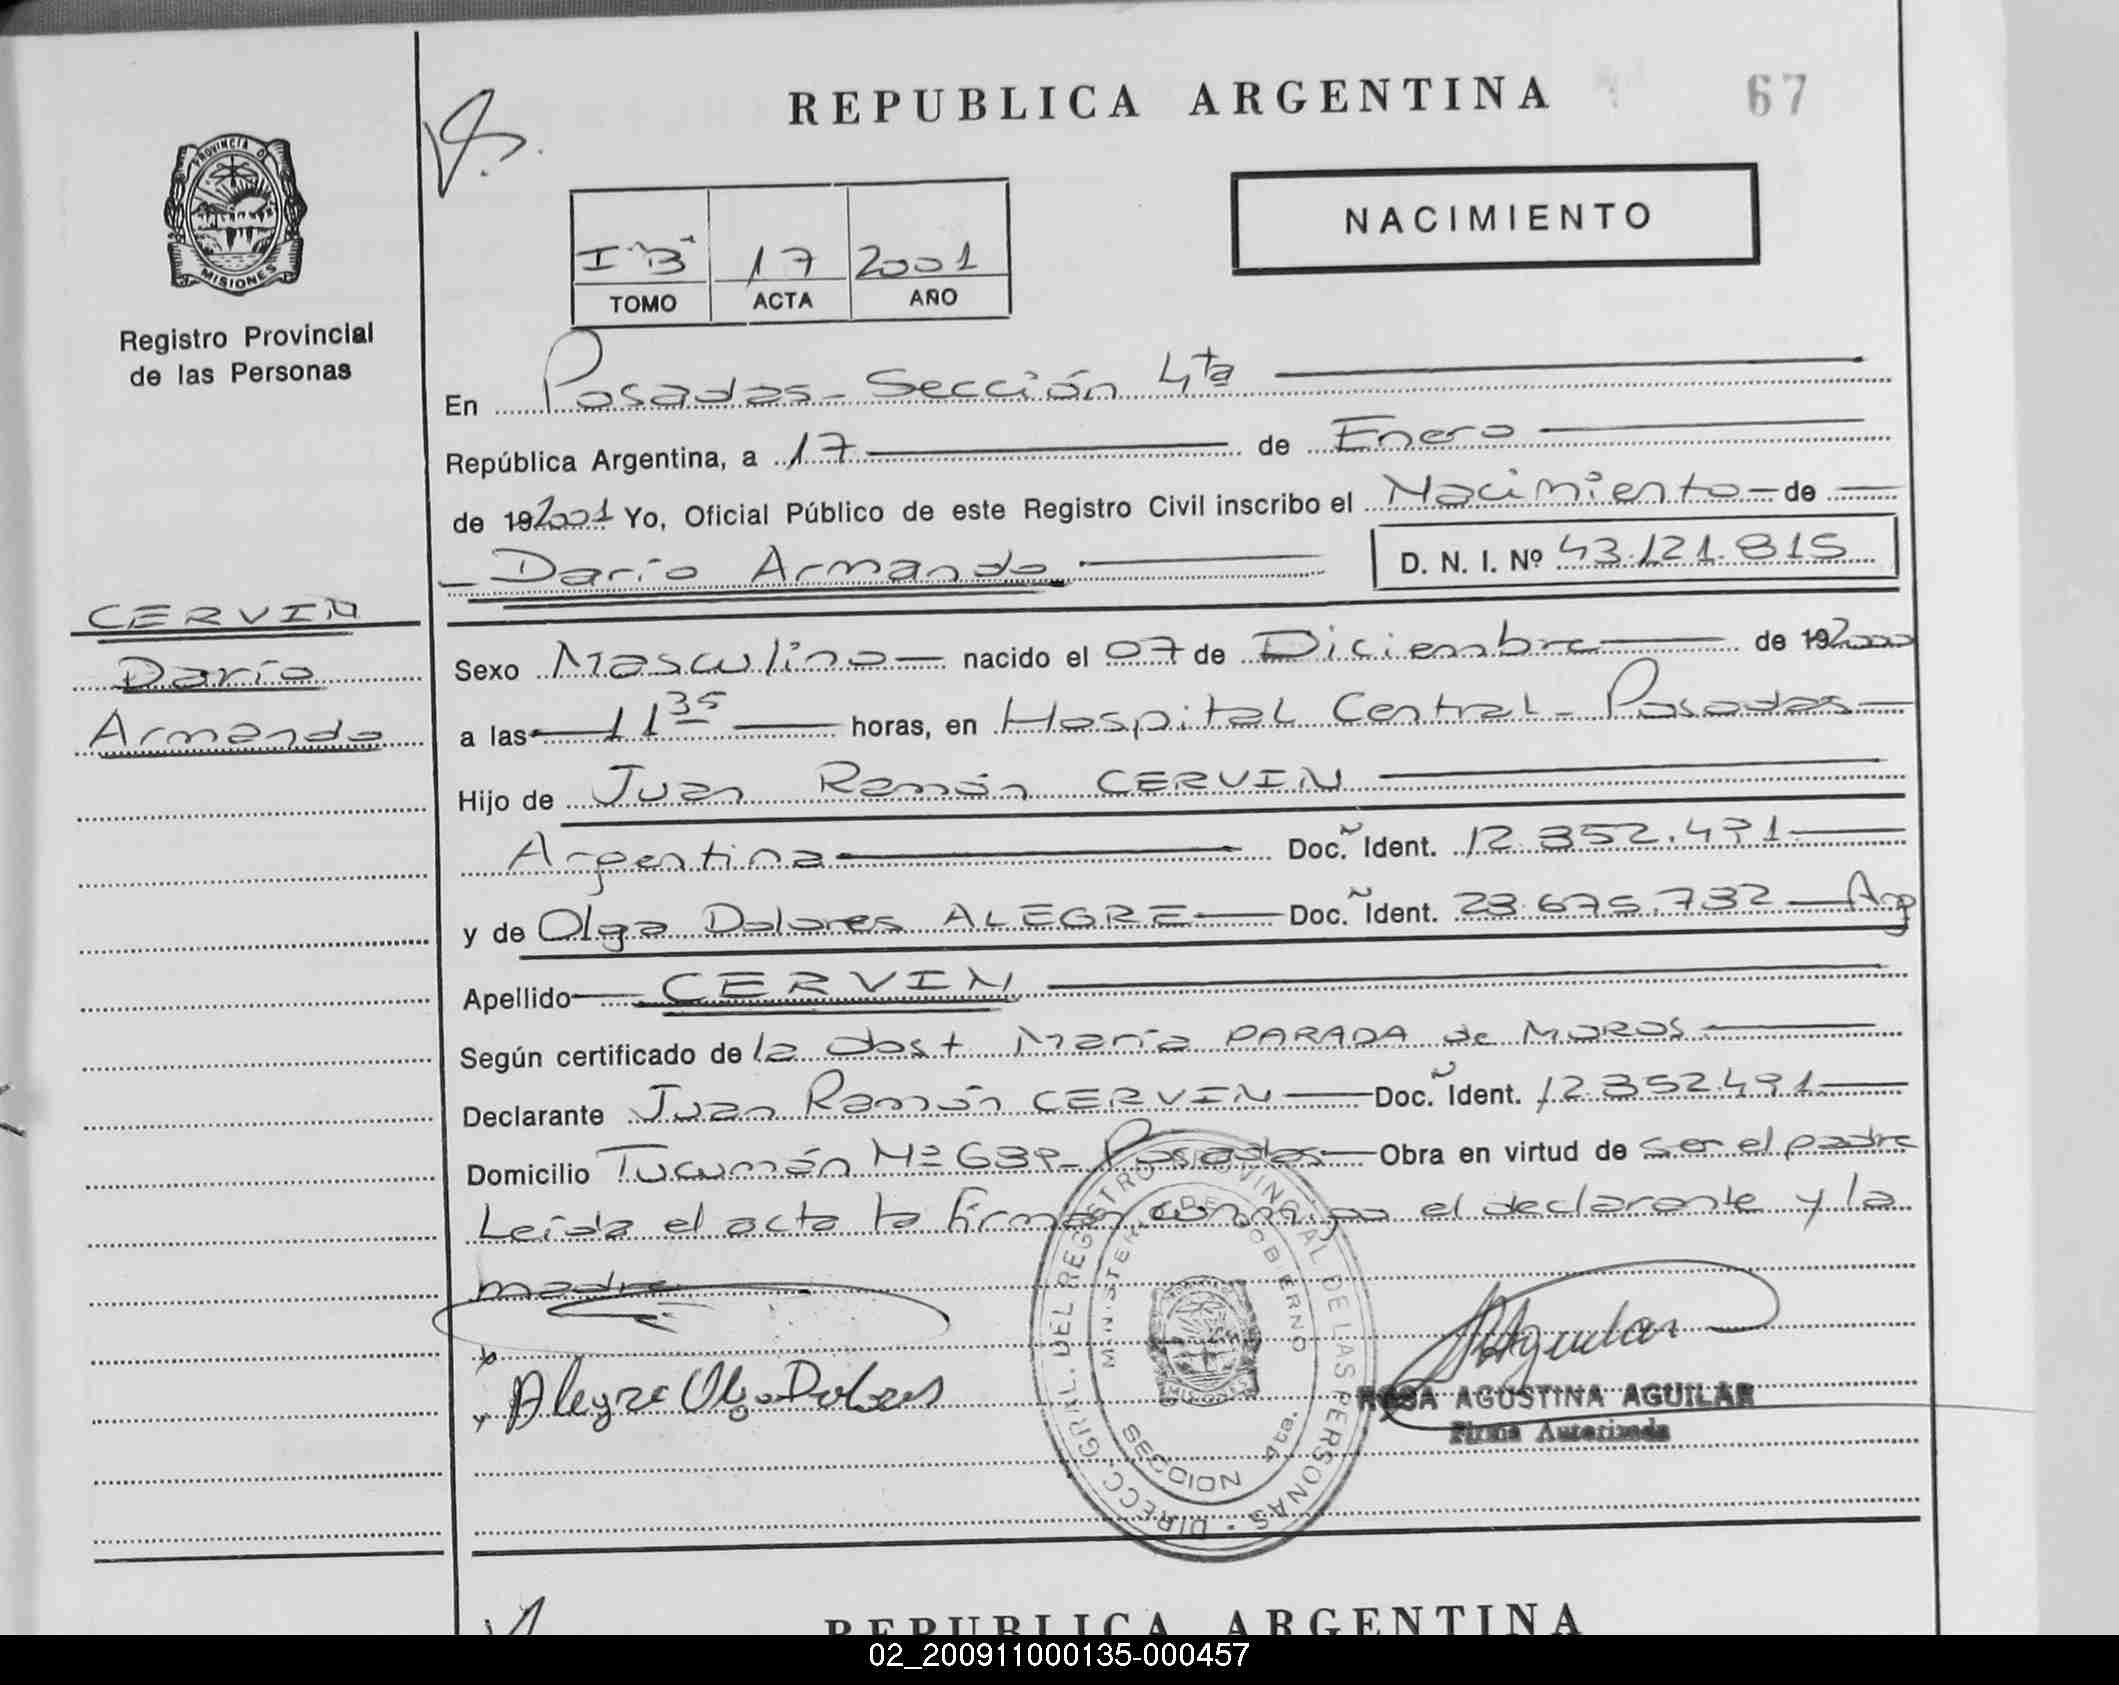 REPUBLICA ARGENTINA
67
PROVINCIA D
MISIONES
Registro Provincial
de las Personas
I "B" 17 2001
TOMO ACTA AÑO
NACIMIENTO
En Posadas - Sección 4ta
República Argentina, a 17 de Enero
de 192001 Yo, Oficial Público de este Registro Civil inscribo el Nacimiento de
Darío Armando D. N. I. Nº 43.121.815
CERVIN
Darío
Armando
Sexo Masculino nacido el 07 de Diciembre de 192000
a las 11 35 horas, en Hospital Central - Posadas
Hijo de Juan Ramón CERVIN
Argentina Doc. Ident. 12.352.491
y de Olga Dolores ALEGRE Doc. Ident. 23.675.732 - Arg
Apellido CERVIN
Según certificado de la obst María PARADA de MOROS
Declarante Juan Ramón CERVIN Doc. Ident. 12.352.491
Domicilio Tucumán Nº 639 - Posadas Obra en virtud de ser el padre
Leída el acta la firman conmigo el declarante y la
madre
Alegre Olga Dolores
Aguilar
ROSA AGUSTINA AGUILAR
Firma Autorizada
DIRECC. GRAL. DEL REGISTRO PROVINCIAL DE LAS PERSONAS
MINISTERIO DE GOBIERNO
SECCION 4ta.
REPUBLICA ARGENTINA
02_200911000135-000457